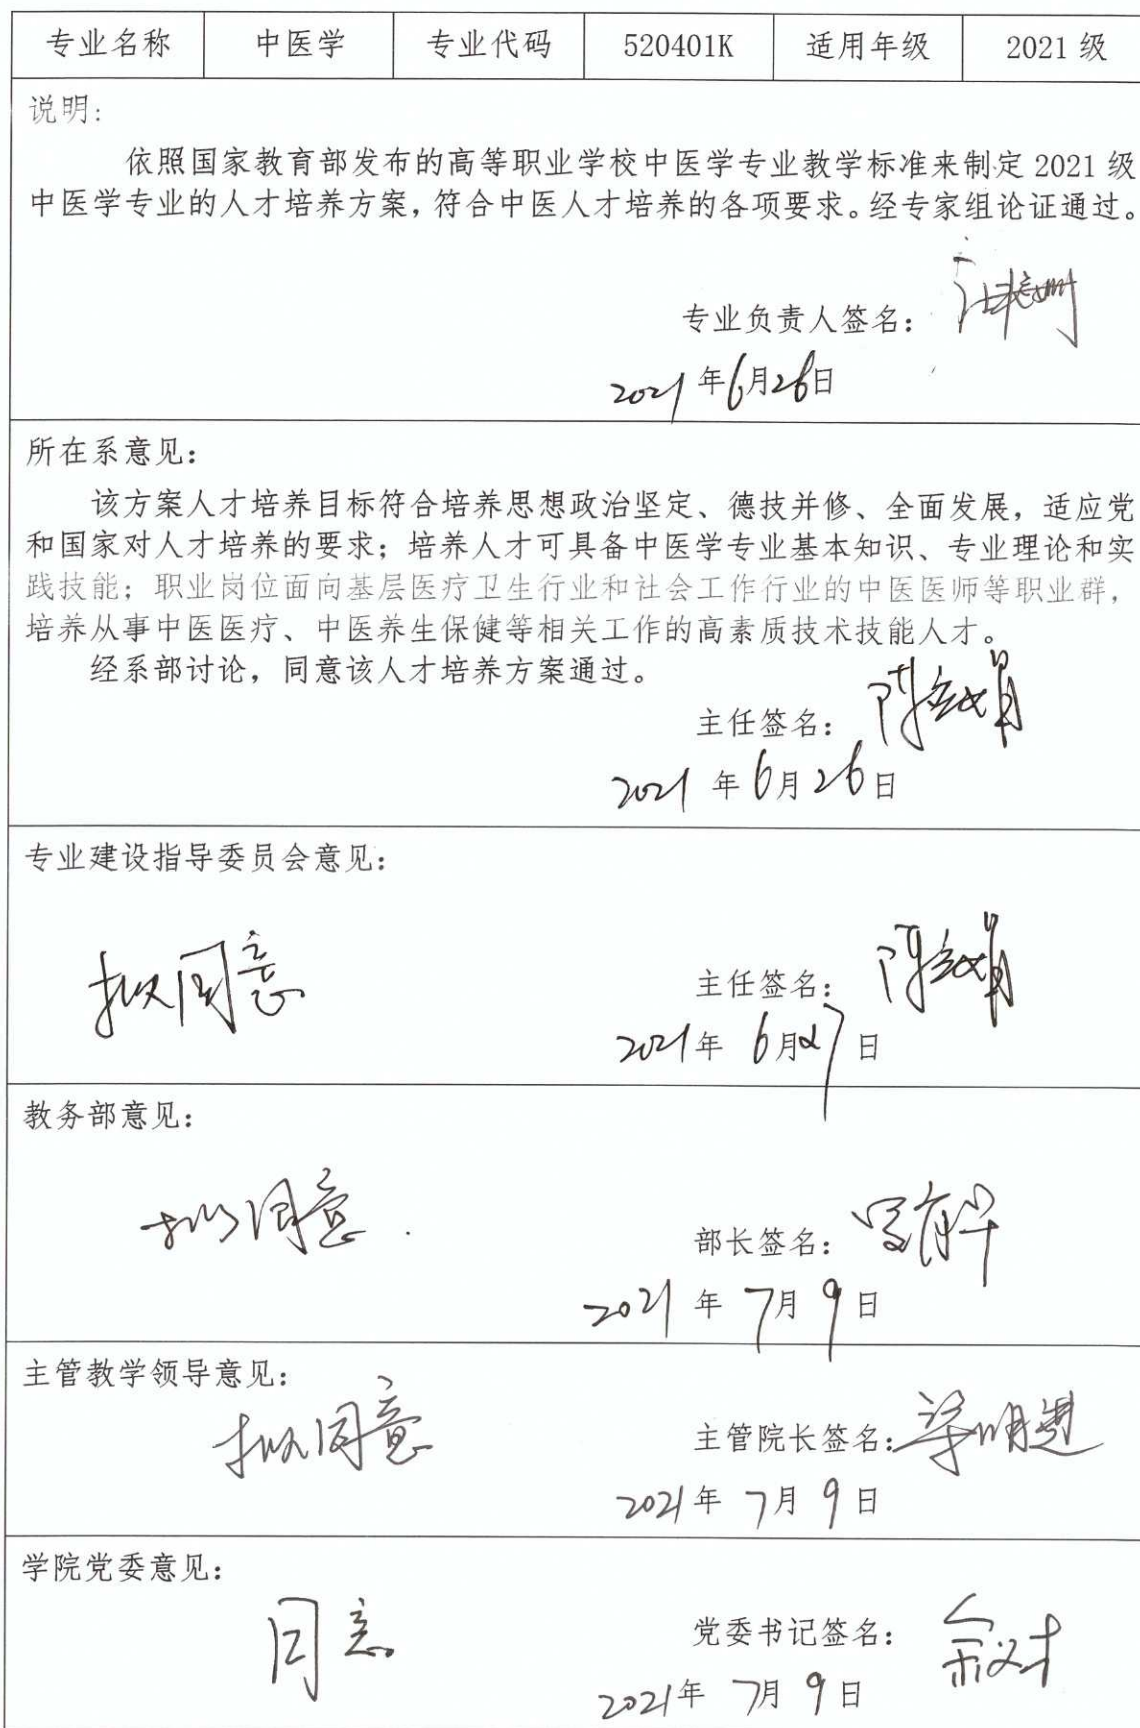 专业名称 中医学 专业代码 520401K 适用年级 2021 级
说明:
依照国家教育部发布的高等职业学校中医学专业教学标准来制定 2021 级
中医学专业的人才培养方案，符合中医人才培养的各项要求。经专家组论证通过。
专业负责人签名：
2021 年 6 月 26 日
所在系意见：
该方案人才培养目标符合培养思想政治坚定、德技并修、全面发展，适应党
和国家对人才培养的要求；培养人才可具备中医学专业基本知识、专业理论和实
践技能；职业岗位面向基层医疗卫生行业和社会工作行业的中医医师等职业群，
培养从事中医医疗、中医养生保健等相关工作的高素质技术技能人才。
经系部讨论，同意该人才培养方案通过。
主任签名：
2021 年 6 月 26 日
专业建设指导委员会意见：
拟同意
主任签名：
2021 年 6 月 27 日
教务部意见：
拟同意
部长签名：
2021 年 7 月 9 日
主管教学领导意见：
拟同意
主管院长签名：
2021 年 7 月 9 日
学院党委意见：
同意
党委书记签名：
2021 年 7 月 9 日